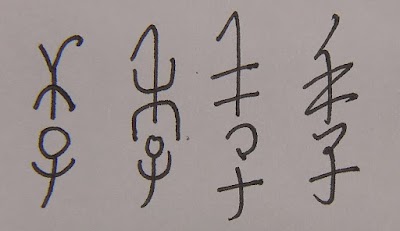 季 季 季 季